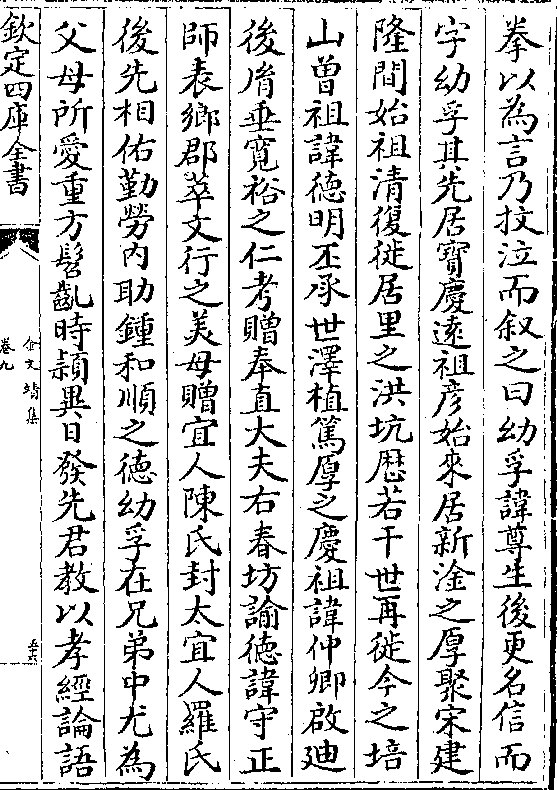 拳以為言乃抆泣而叙之曰幼孚諱尊生後更名信而
字幼孚其先居寶慶遠祖彦始來居新淦之厚聚宋建
隆間始祖清復徙居里之洪坑歴若干世再徙今之培
山曽祖諱德明丕承世澤植篤厚之慶祖諱仲卿啟廸
後胤垂寛裕之仁考贈奉直大夫右春坊諭德諱守正
師表鄉郡萃文行之美母贈宜人陳氏封太宜人羅氏
後先相佑勤勞内助鍾和順之德幼孚在兄弟中尤為
父母所愛重方髫齓時穎異日發先君教以孝經論語
欽定四庫全書
金文靖集
卷九